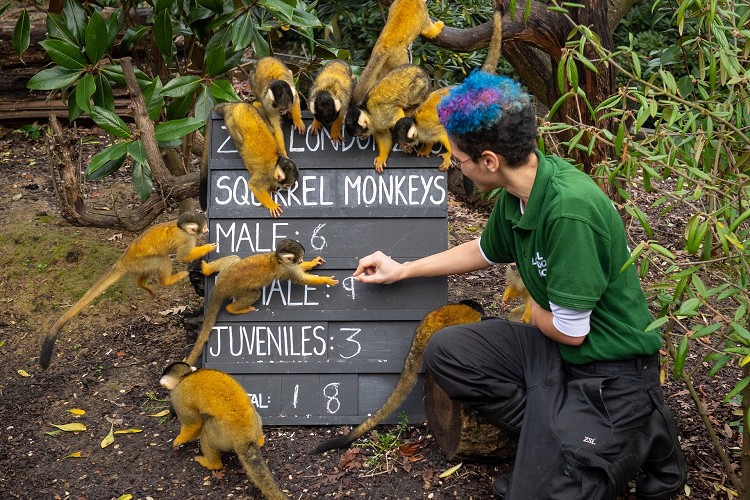 2 LONDON Z
SQUIRREL MONKEYS
MALE: 6
MALE: 9
JUVENILES: 3
TAL: 18
ZSL